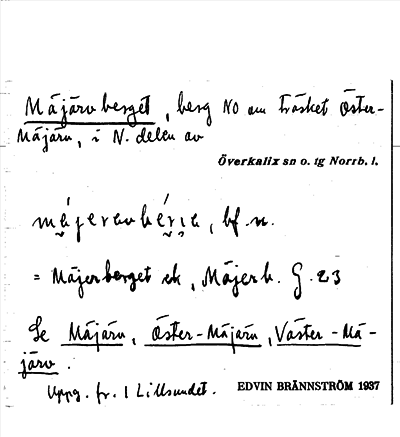 Mäjärvberget, berg NO om träsket Öster-
Mäjärv, i N. delen av
Överkalix sn o. tg Norrb. l.
bf. n.
= Mäjerberget ek, Mäjerb. G. 23
Se Mäjärv, Öster-Mäjärv, Väster-Mä-
järv.
Uppg. fr. I Lillsundet. EDVIN BRÄNNSTRÖM 1937